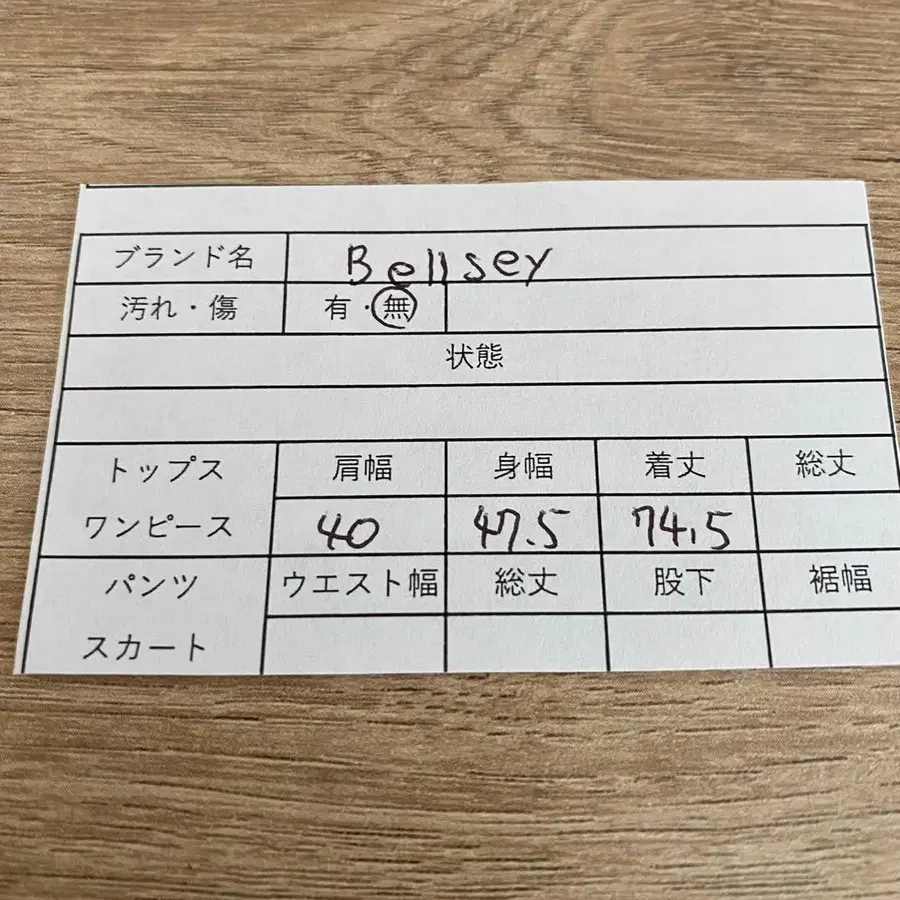 ブランド名 Bellsey
汚れ・傷 有・無
状態
トップス 肩幅 身幅 着丈 総丈
ワンピース 40 47.5 74.5
パンツ ウエスト幅 総丈 股下 裾幅
スカート